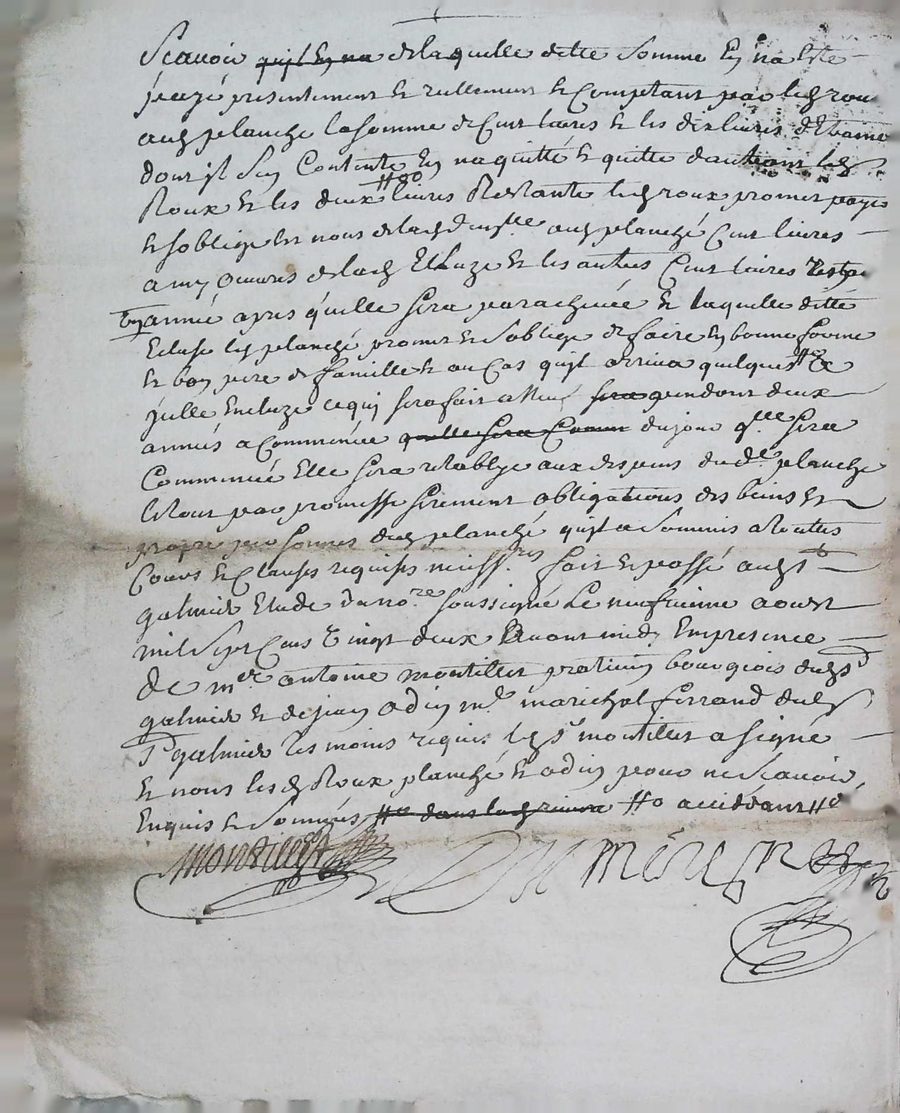 Scavoir quil en na de laquelle ditte somme en na este
payé presentement et reellement et comptant par led rou
aud planche la somme de cent livres et les dix livres d'Etraine
dont il sen contente en na quitté et quitte dautant led
Roux et les deux cent livres Restante led roux promet paye
et soblige aud planché Cent livres
a my œuvres de lad Ecluze et les autres Cent livres reste
en année apres qu'elle sera parachevée et laquelle ditte
Ecluse led planché promet et soblige de faire en bonne forme
et bon pere de famille et au cas quil arriva quelques
alle Encluze ce qui sera fait a neuf sera pendant deux
années a Commencée quelle sera Comm du jour qlle sera
Commencée Elle sera retablye aux despens dud planche
le tout par promesse serement obligations des biens et
propre personnes dud planché quil a soumis a toutes
Cours et Clauses requises fait et passé aud St
galmier Etude du nore soussigné Le neufvieme aoust
mil sept cens vingt deux avant midy En presence
de mre antoine montillet praticien bourgeois dud St
galmier et de jean odin me marechal ferrand dud
St galmier tesmoins requis led Sr montillet a signé
et nous led Roux planché et odin pour ne scavoir
Enquis et sommés dans lad riviere accideant
montillet